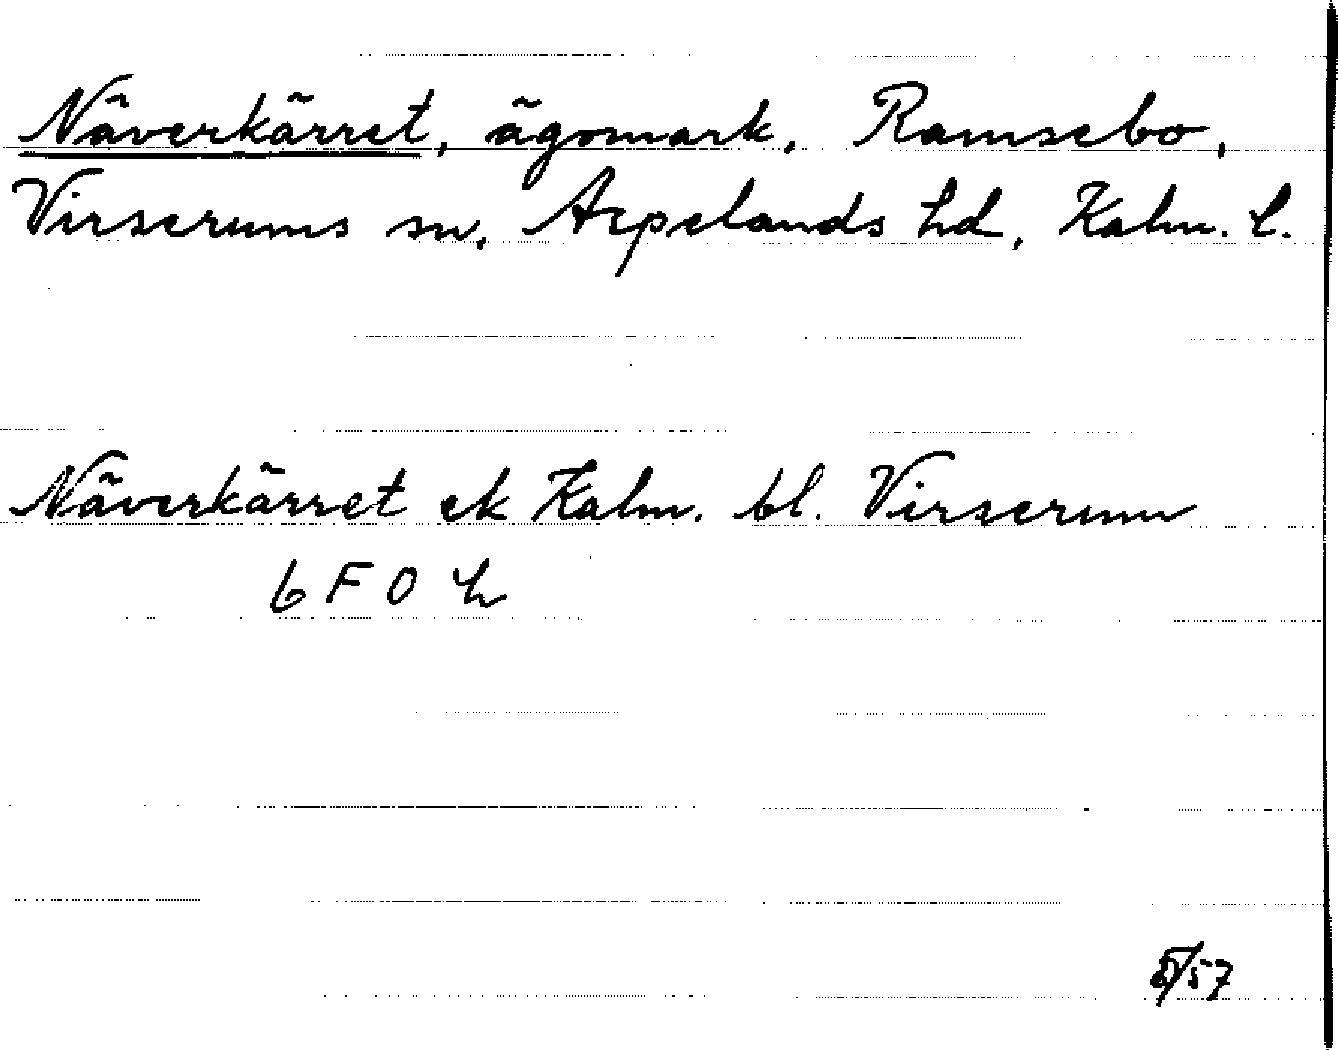 Näverkärret, ägomark, Ramsebo,
Virserums sn, Aspelands hd, Kalm. l.
Näverkärret ek Kalm. bl. Virserum
6 F 0 h
5/57